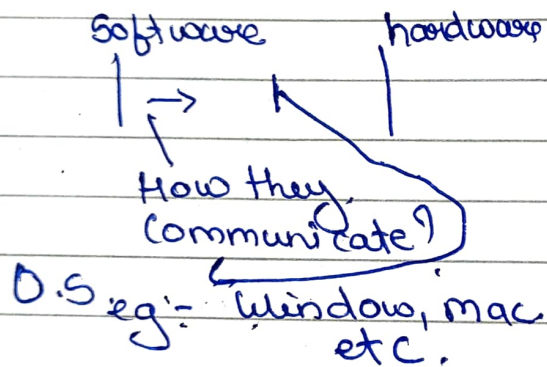 software hardware
How they
communicate?
O.S eg:- Window, mac
etc.